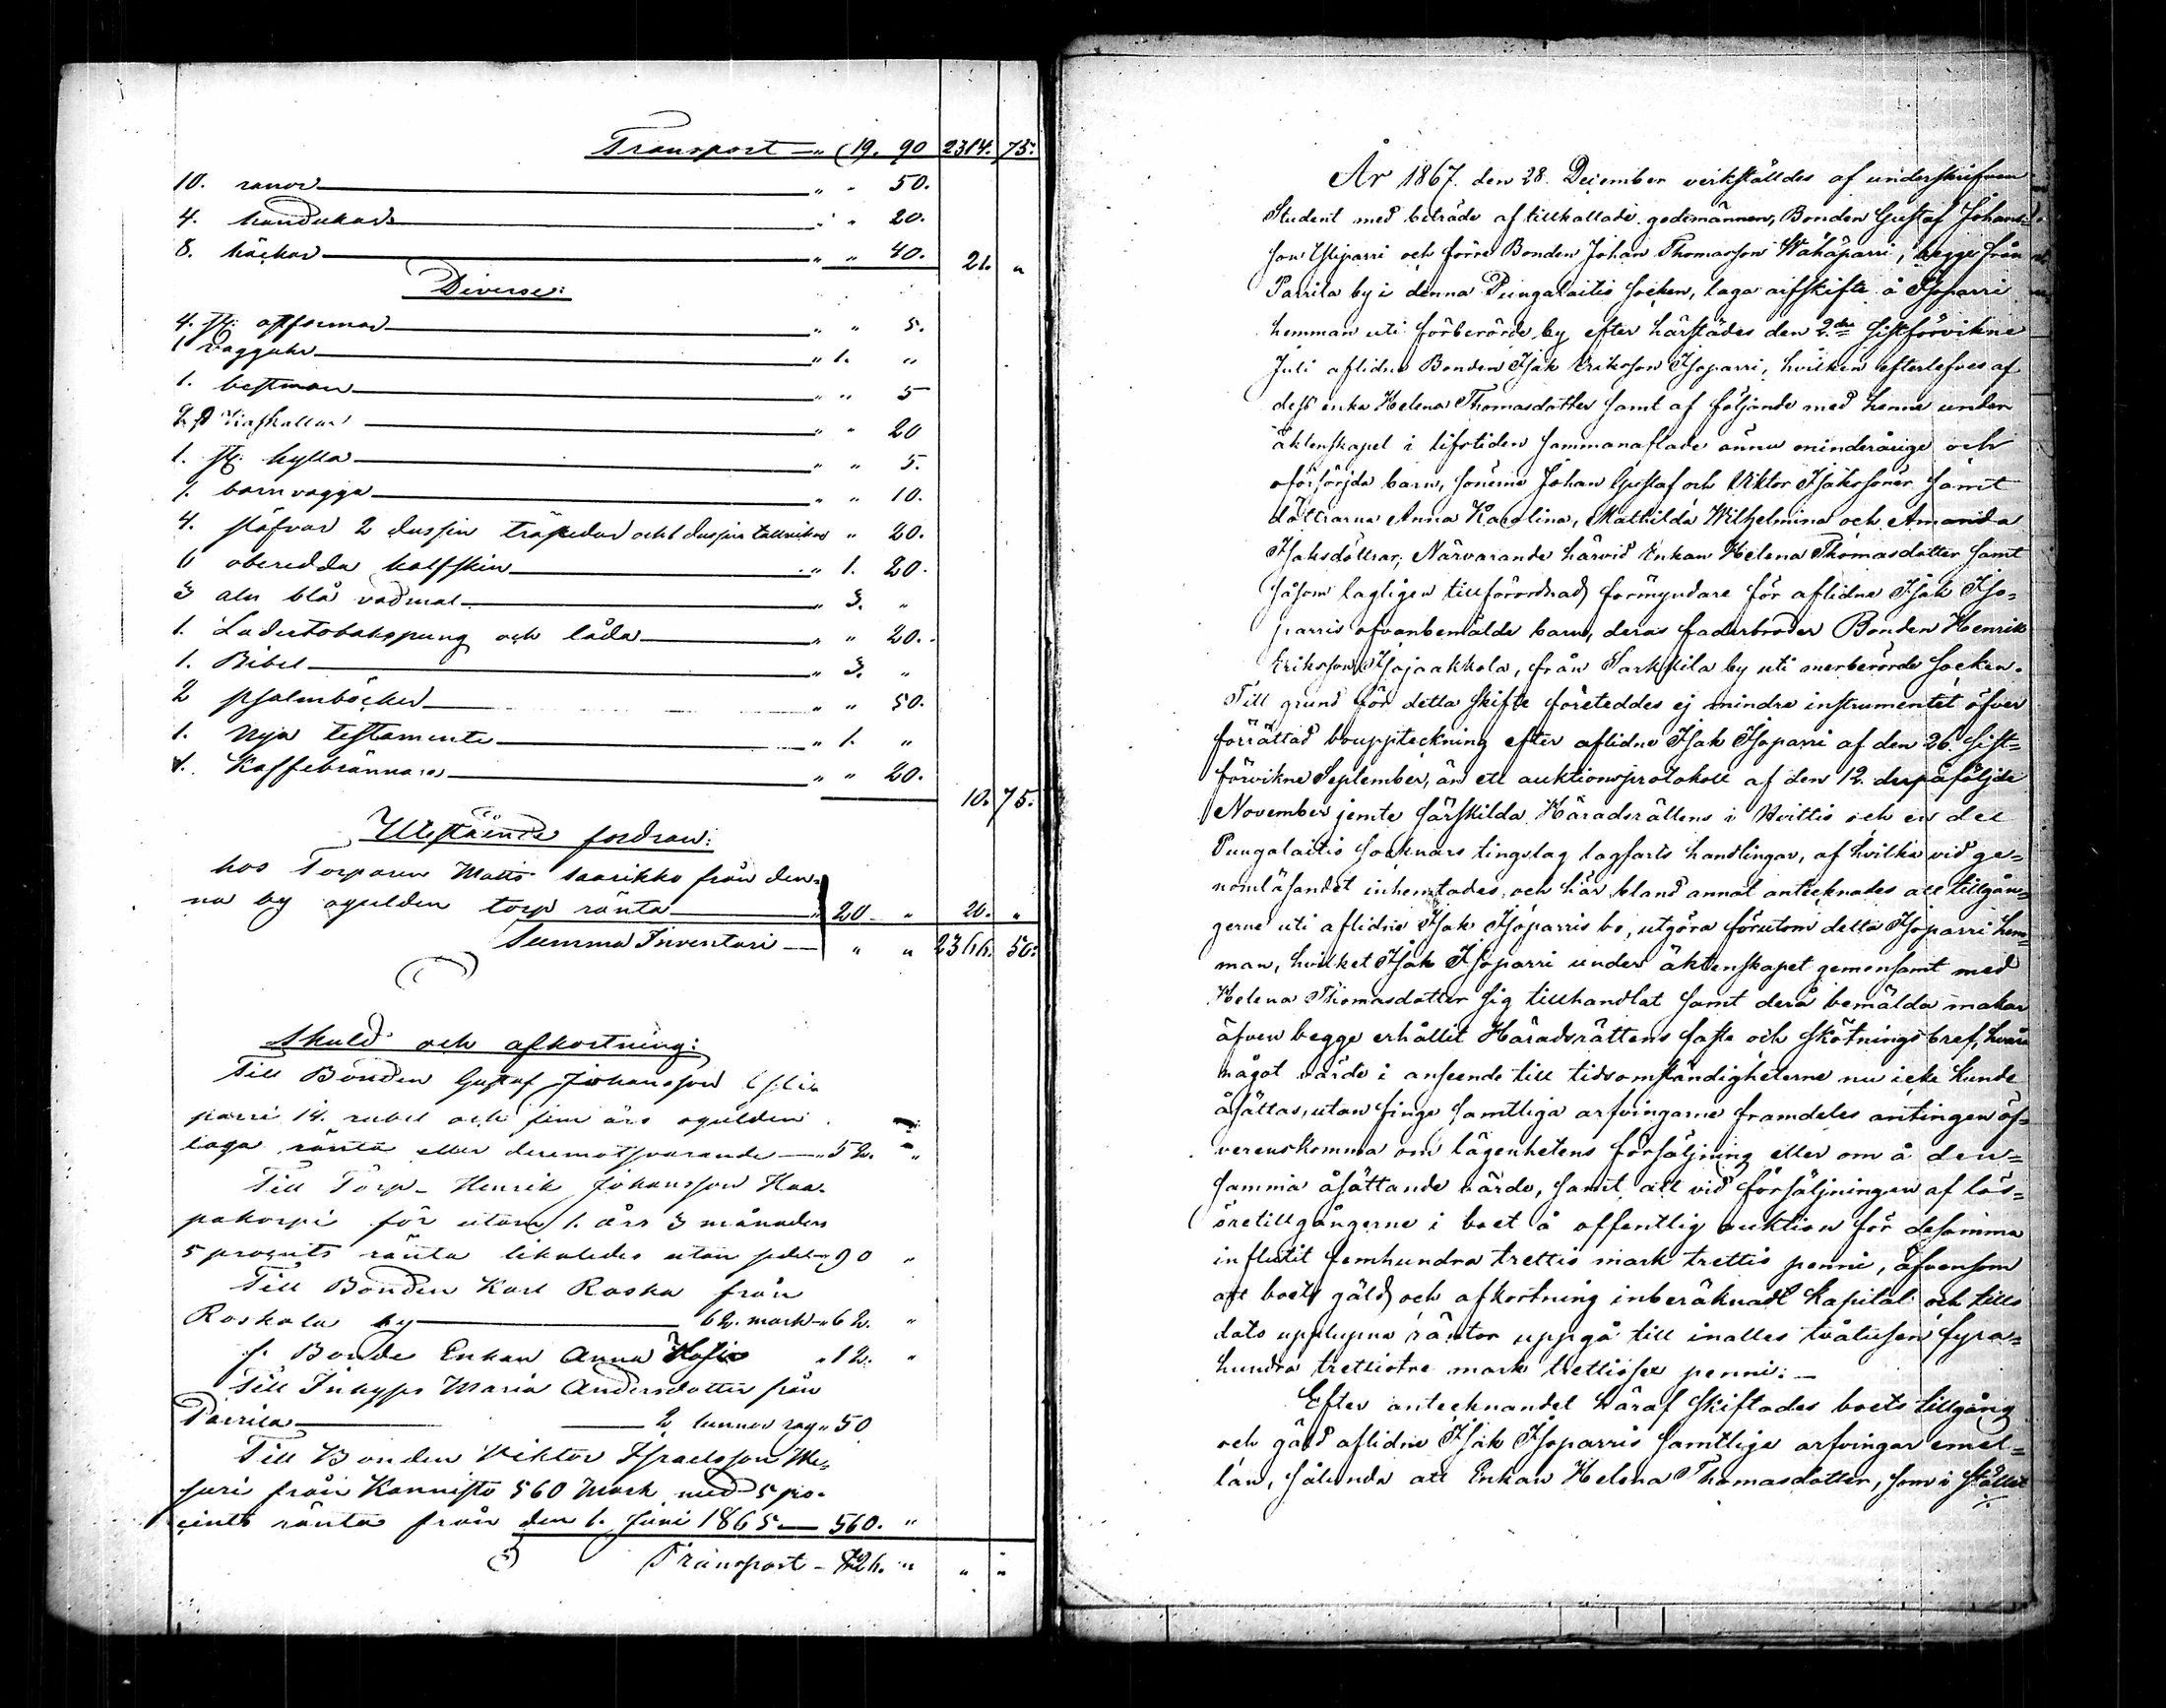 Transport — „ 19. 90 2314. 75.
10. ranor „ „ 50.
4. handukar „ „ 20.
8. häckor „ „ 40. 21. „
Diverse:
4. st. ostformar „ „ 5.
1 vagguhr „ 1. „
1. bestman „ „ 5
„ „ 20
1. st. hylla „ „ 5.
1. barnvagga „ „ 10.
4. stäfvor 2 dussin träskedar och 1 dussin tallrikar „ 20.
6 oberedda kalfskin „ 1. 20.
3 aln blå vadmal „ 3. „
1. Lädertobakspung och låda „ „ 20.
1. Bibel „ 3. „
2 psalmböcker „ „ 50.
1. Nya testamente „ 1. „
1. Kaffebrännare „ „ 20.
10. 75.
Utestående fordran:
hos Torparen Matts Saarikko från den-
na by ogulden torp ränta „ 20 „ 20. „
Summa Inventari — „ „ 2366. 50.
Skuld och afkortning:
Till Bonden Gustaf Johansson Yli-
parri 14. rubel och fem års ogulden
laga ränta eller deremotsvarande — „ 52. „
Till Torp. Henrik Johansson Haa-
pakorpi för utom 1. års 3 månaders
5 procents ränta likaledes utan sedel „ 90 „
Till Bonden Karl Raska från
Raskala by 62. mark „ 62. „
f. Bonde Enkan Anna „ 12. „
Till Inhyses Maria Andersdotter från
Parrila 2 tunnor råg „ 50
Till Bonden Viktor Israelsson
från Kannisto 560 Mark med 5 pro-
cents ränta från den 1. Juni 1865 — 560. „
Transport — 826. „ „ „
År 1867. den 28. December verkstäldes af underskrifven
Student med biträde af tillkallade godemännen, Bonden Gustaf Johans-
son Yliparri och förre Bonden Johan Thomasson Wähäparri, begge från
Parrila by i denna Pungalaitis socken, laga arfskifte å Isoparri
hemman uti förberörde by efter härstädes den 2.dre sistförvikne
Juli aflidne Bonden Isak Eriksson Isoparri, hvilken efterlefves af
dess enka Helena Thomasdotter samt af följande med henne under
äktenskapet i lifstiden sammanaflade ännu minderåriga och
oförsörjda barn, sönerna Johan Gustaf och Viktor Isakssöner samt
döttrarna Anna Karolina, Mathilda Wilhelmina och Amanda
Isaksdöttrar; Närvarande härvid Enkan Helena Thomasdotter samt
såsom lagligen tillförordnad förmyndare för aflidne Isak Iso-
parris ofvanbemälde barn, deras faderbroder Bonden Henrik
Eriksson Isojaakkola, från Sarkkila by uti merberörde socken.
Till grund för detta skifte företeddes ej mindre instrumentet öfver
förrättad bouppteckning efter aflidne Isak Isoparri af den 26. sist-
förvikne September, än ett auktionsprotokoll af den 12. derpåföljde
November jemte särskilda Häradsrättens i Hvittis och en del
Pungalaitis socknars tingslag lagfarts handlingar, af hvilka vid ge-
nomläsandet inhemtades och här bland annat antecknades att tillgån-
gerne uti aflidne Isak Isoparris bo, utgöra förutom detta Isoparri hem-
man, hvilket Isak Isoparri under äktenskapet gemensamt med
Helena Thomasdotter sig tillhandlat samt derå bemälda makar
äfven begge erhållit Häradsrättens fasta och skötnings bref, hvarå
något värde i anseende till tidsomständigheterne nu icke kunde
åsättas, utan finge samtliga arfvingarne framdeles antingen öf-
verenskomma om lägenhetens försäljning eller om å den-
samma åsättande värde, samt att vid försäljningen af lös-
öretillgångerne i boet å offentlig auktion för desamma
influtit femhundra trettio mark trettio penni, äfvensom
att boets gäld och afkortning inberäknadt kapital och tills
dato upplupna räntor uppgå till inalles tvåtusen fyra-
hundra trettiotre mark trettiosex penni: —
Efter antecknandet häraf skiftades boets tillgång
och gäld aflidne Isak Isoparris samtliga arfvingar emel-
lan, sålunda att Enkan Helena Thomasdotter, som i stället